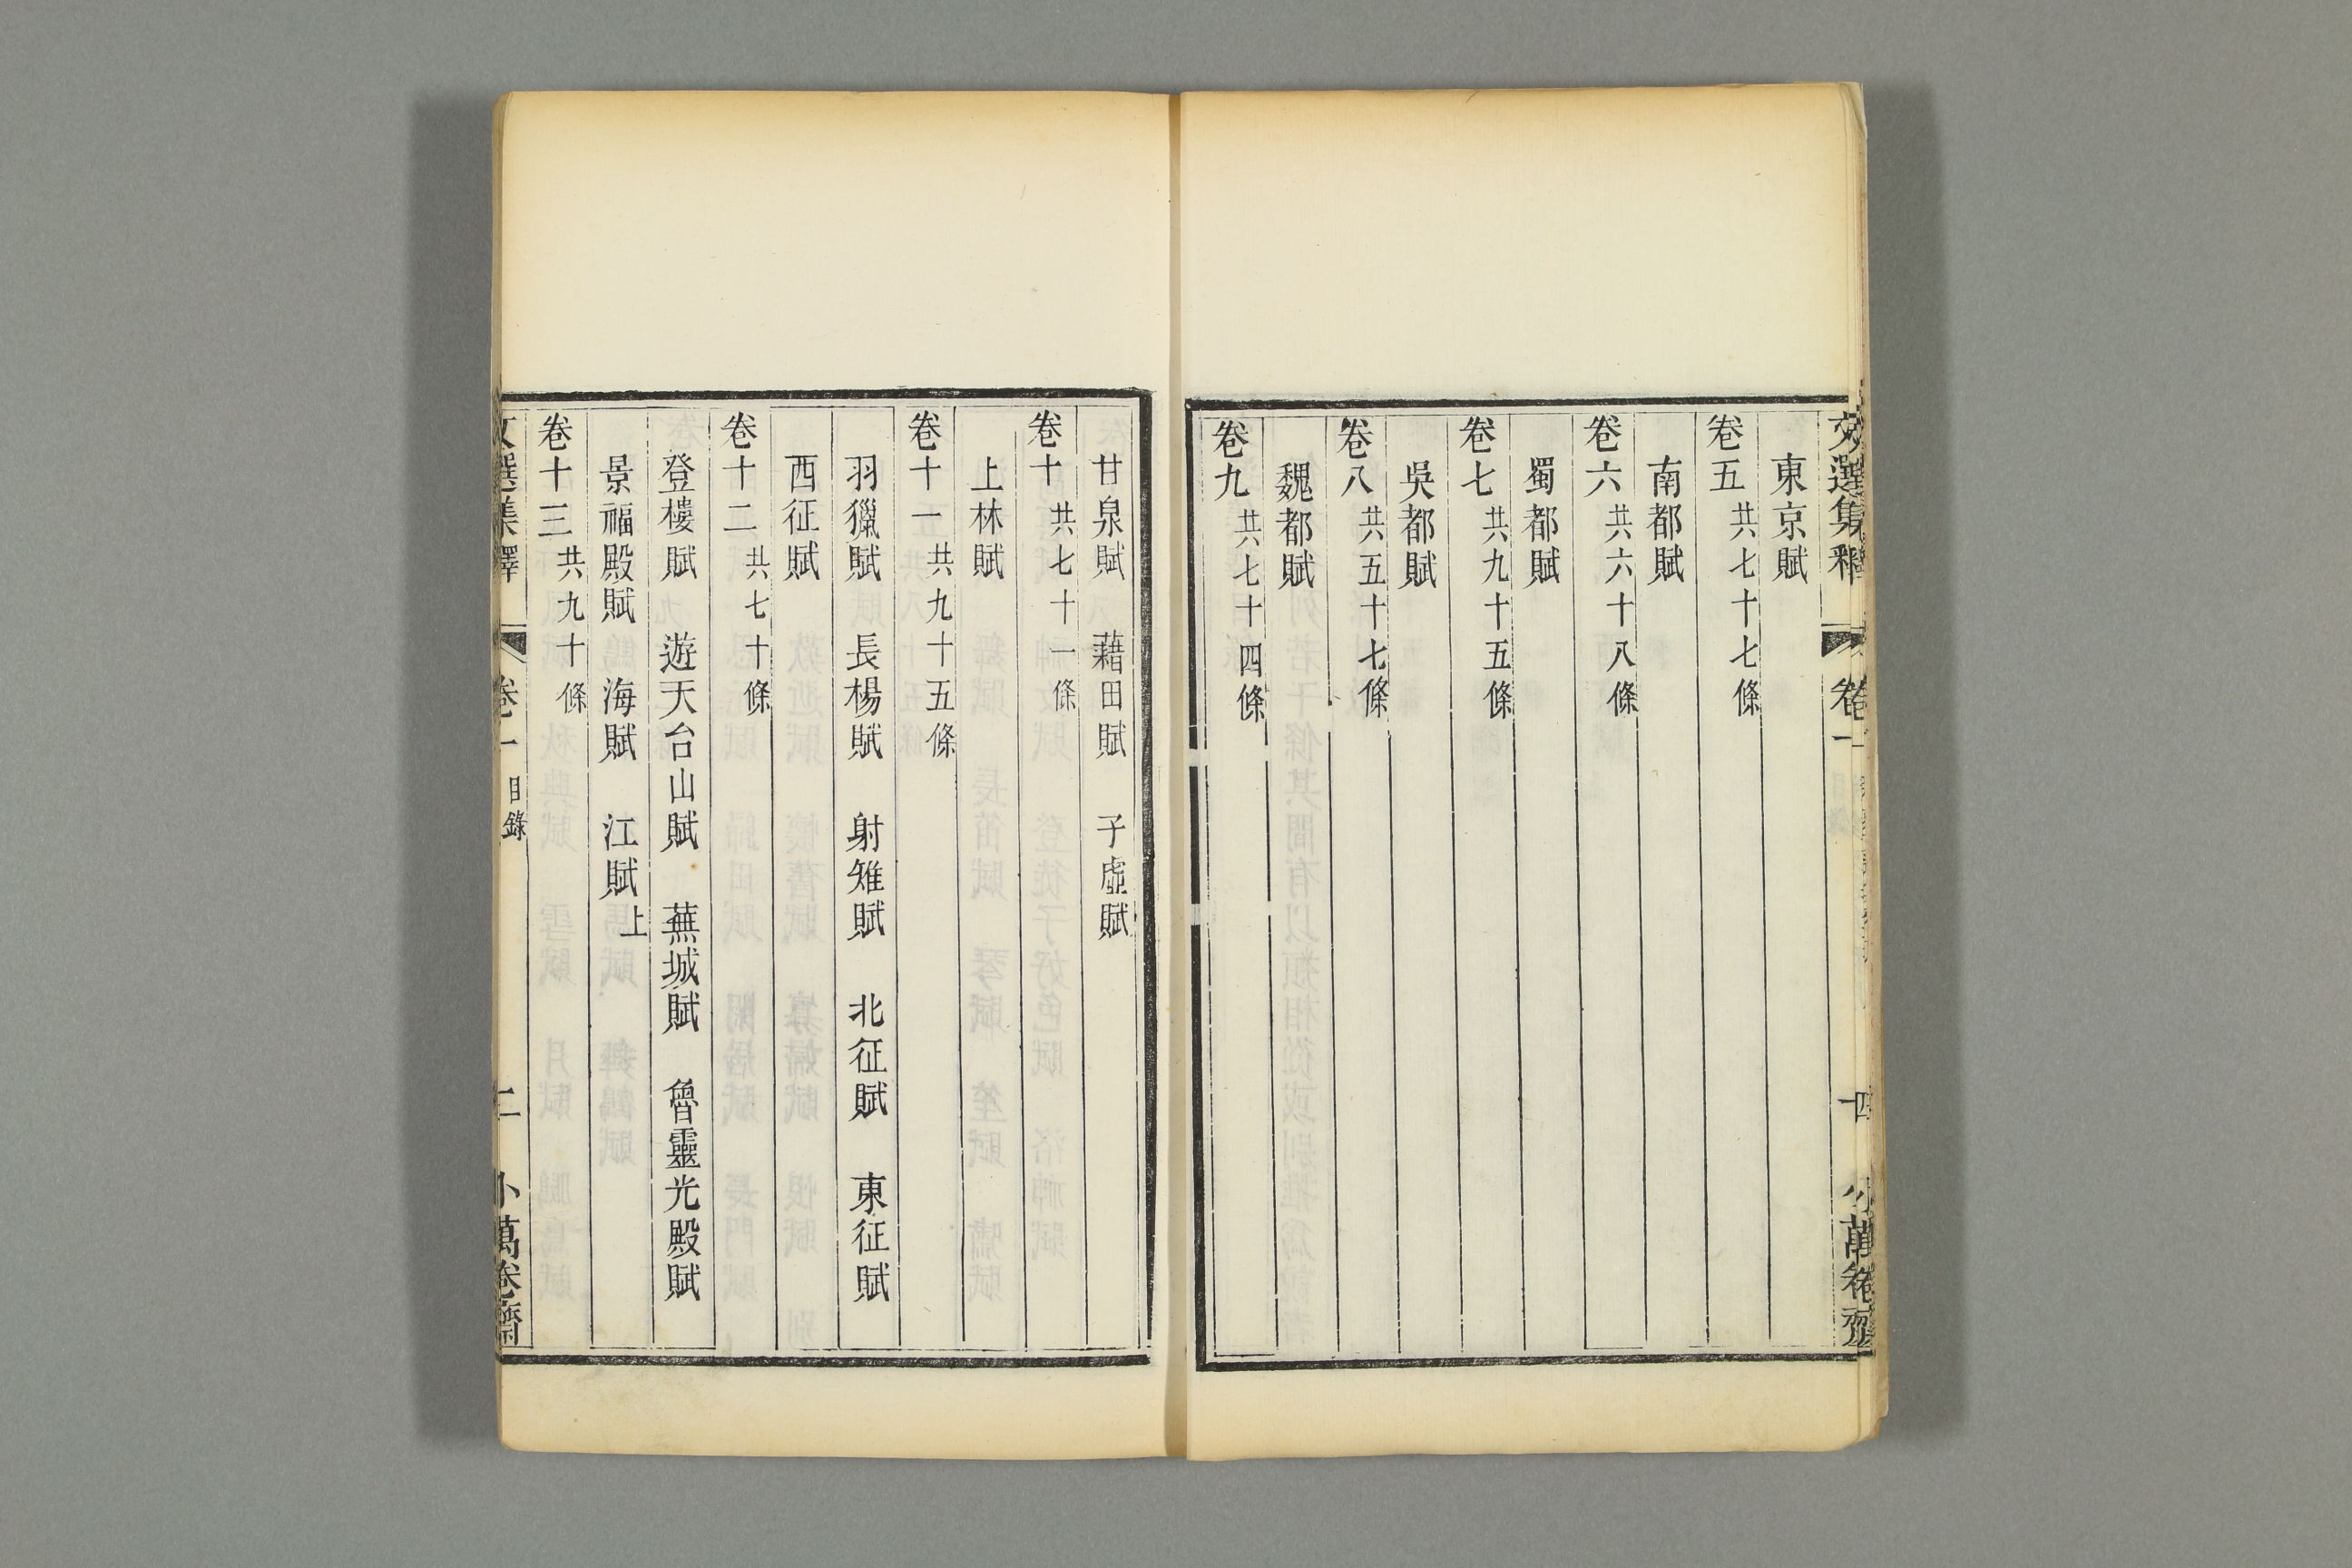 東京賦
卷五 共七十七條
南都賦
卷六 共六十八條
蜀都賦
卷七 共九十五條
吳都賦
卷八 共五十七條
魏都賦
卷九 共七十四條
甘泉賦 藉田賦 子虛賦
卷十 共七十一條
上林賦
卷十一 共九十五條
羽獵賦 長楊賦 射雉賦 北征賦 東征賦
西征賦
卷十二 共七十條
登樓賦 遊天台山賦 蕪城賦 魯靈光殿賦
景福殿賦 海賦 江賦上
卷十三 共九十條
文選集釋 卷一 目錄 二 小萬卷齋